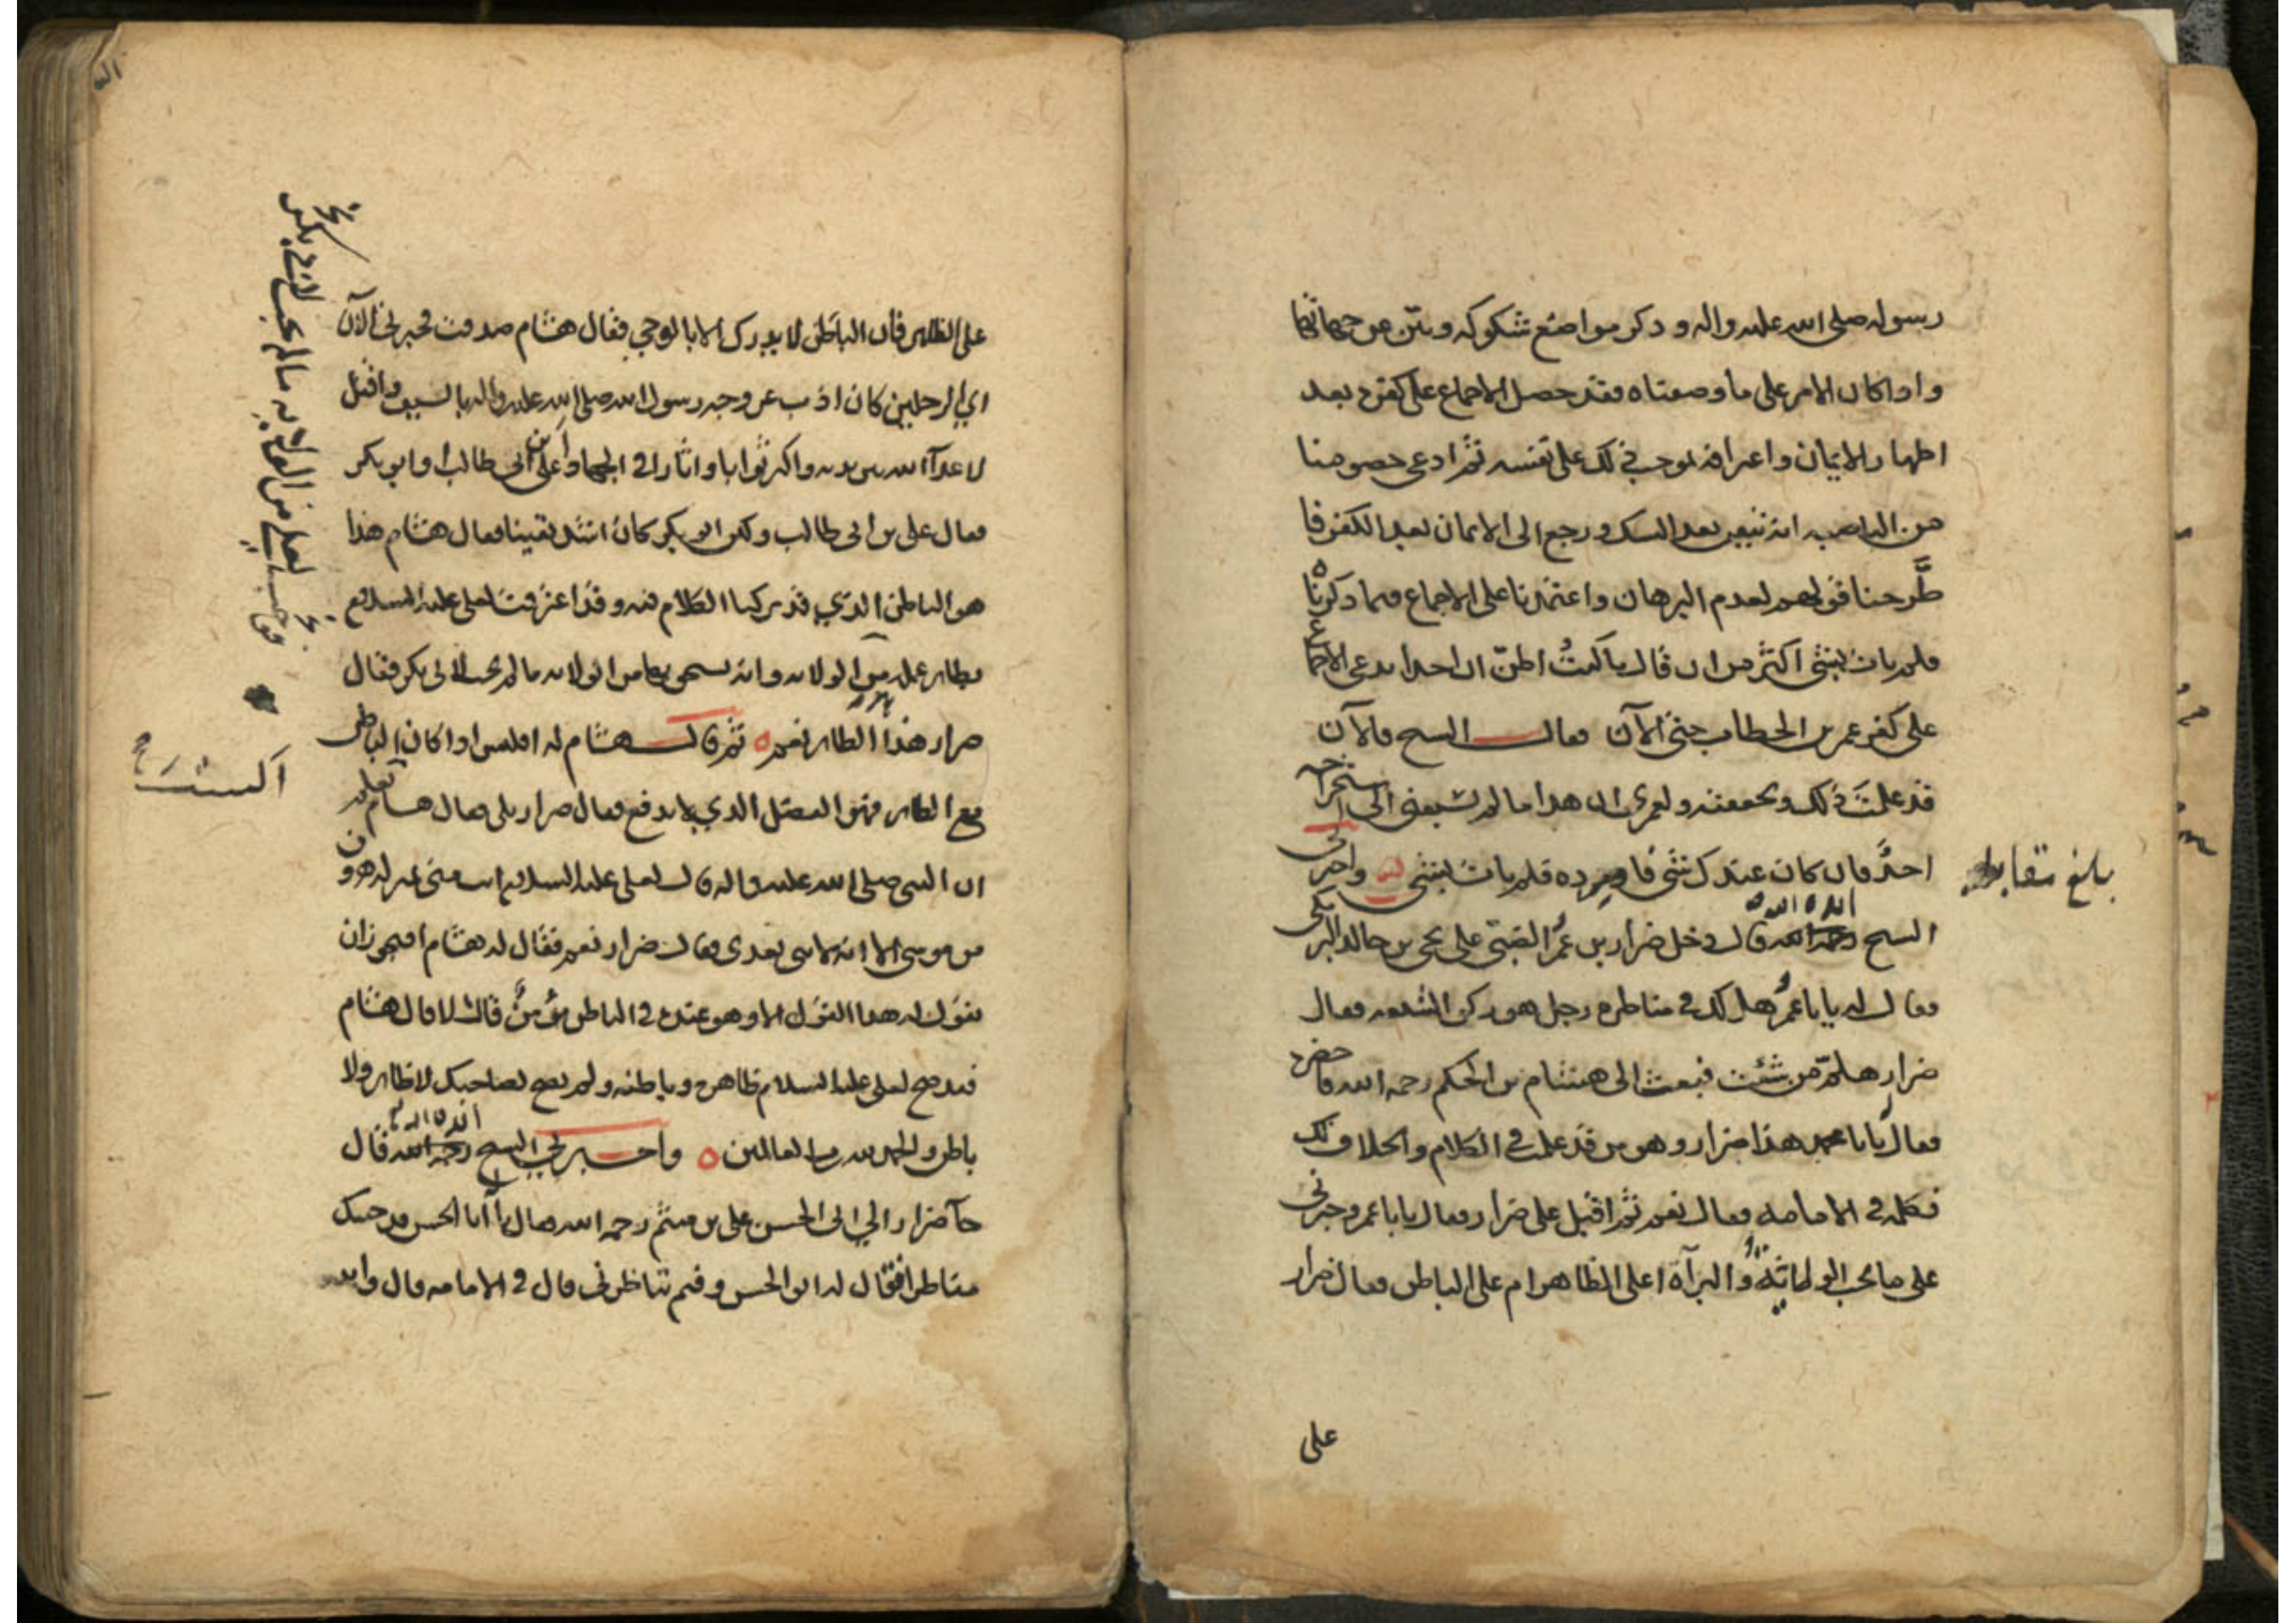 رسوله صلى الله عليه واله وذكر مواضع شكوكه وبين عن جهاتها
واذا كان الامر على ما وصفناه فقد حصل الاجماع على كفره بعد
اظهار الايمان واعترافه بموجب ذلك على نفسه ثم ادعى خصومنا
من الناصبه انه تيقن بعد الشك ورجع الى الايمان بعد الكفر فا
طرحنا قولهم لعدم البرهان واعتمدنا على الاجماع فيما ذكرناه
فلم يات بشئ اكثر من ان قال ما كنت اظن ان احدا يدعى الاجماع
على كفر عمر بن الخطاب حتى الآن فقال الشيخ فالآن
قد علمت ذلك وتحققته ولعمرى ان هذا ما لم يسبقنى الى استخراجه
احد فان كان عندك شئ فاورده فلم يات بشئ واخبرنى
الشيخ ايده الله قال دخل ضرار بن عمر الضبى على يحيى بن خالد البرمكى
فقال له يا با عمر هل لك فى مناظرة رجل هو ركن الشيعه فقال
ضرار هلم من شئت فبعث الى هشام بن الحكم رحمه الله فاحضره
فقال يا با محمد هذا ضرار وهو من قد علمت فى الكلام والخلاف لك
فكلمه فى الامامه فقال نعم ثم اقبل على ضرار فقال يا با عمرو خبرنى
على ما تجب الولاية والبرآة اعلى الظاهر ام على الباطن فقال ضرار
على
بلغ مقابلة
على الظاهر فان الباطن لا يدرك الا بالوحي فقال هشام صدقت فخبرنى الآن
اي الرجلين كان اذب عن وجه رسول الله صلى الله عليه واله بالسيف واقتل
لاعدآ الله بين يديه واكثر ثوابا واثارا فى الجهاد أعلى بن ابى طالب او ابو بكر
فقال على بن ابى طالب ولكن ابو بكر كان اشد يقينا فقال هشام هذا
هو الباطن الذي قد تركنا الكلام فيه وقد اعترفت لعلى عليه السلام
بظاهر عمله من الولايه وانه يستحق بها من الولايه ما لم يجب لابى بكر فقال
ضرار هذا الظاهر نعم ثم قال هشام له افليس اذا كان الباطن
مع الظاهر فهو الفضل الذي لا يدفع فقال ضرار بلى فقال هشام ا تعلم
ان النبى صلى الله عليه واله قال لعلى عليه السلام انت منى بمنزله هرون
من موسى الا انه لا نبى بعدى فقال ضرار نعم فقال له هشام افيجوز ان
يقول له هذا القول الا وهو عنده فى الباطن مؤمن قال لا قال هشام
فقد صح لعلى عليه السلام ظاهره وباطنه ولم يصح لصاحبك لا ظاهر ولا
باطن والحمد لله رب العالمين واخبرنى الشيخ ايده الله قال
جآ ضرار الي ابى الحسن على بن ميثم رحمه الله فقال يا أبا الحسن قد جئتك
مناظرا فقال له ابو الحسن وفيم تناظرنى قال فى الامامه قال
لعلى من الولايه ما لم يجب لابى بكر